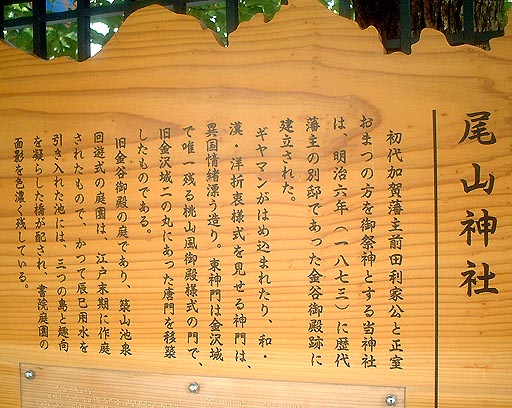 尾山神社
初代加賀藩主前田利家公と正室
おまつの方を御祭神とする当神社
は、明治六年（一八七三）に歴代
藩主の別邸であった金谷御殿跡に
建立された。
ギヤマンがはめ込まれたり、和・
漢・洋折衷様式を見せる神門は、
異国情緒漂う造り。東神門は金沢城
で唯一残る桃山風御殿様式の門で、
旧金沢城二の丸にあった唐門を移築
したものである。
旧金谷御殿の庭であり、築山池泉
回遊式の庭園は、江戸末期に作庭
されたもので、かつて辰巳用水を
引き入れた池には、三つの島と趣向
を凝らした橋が配され、書院庭園の
面影を色濃く残している。